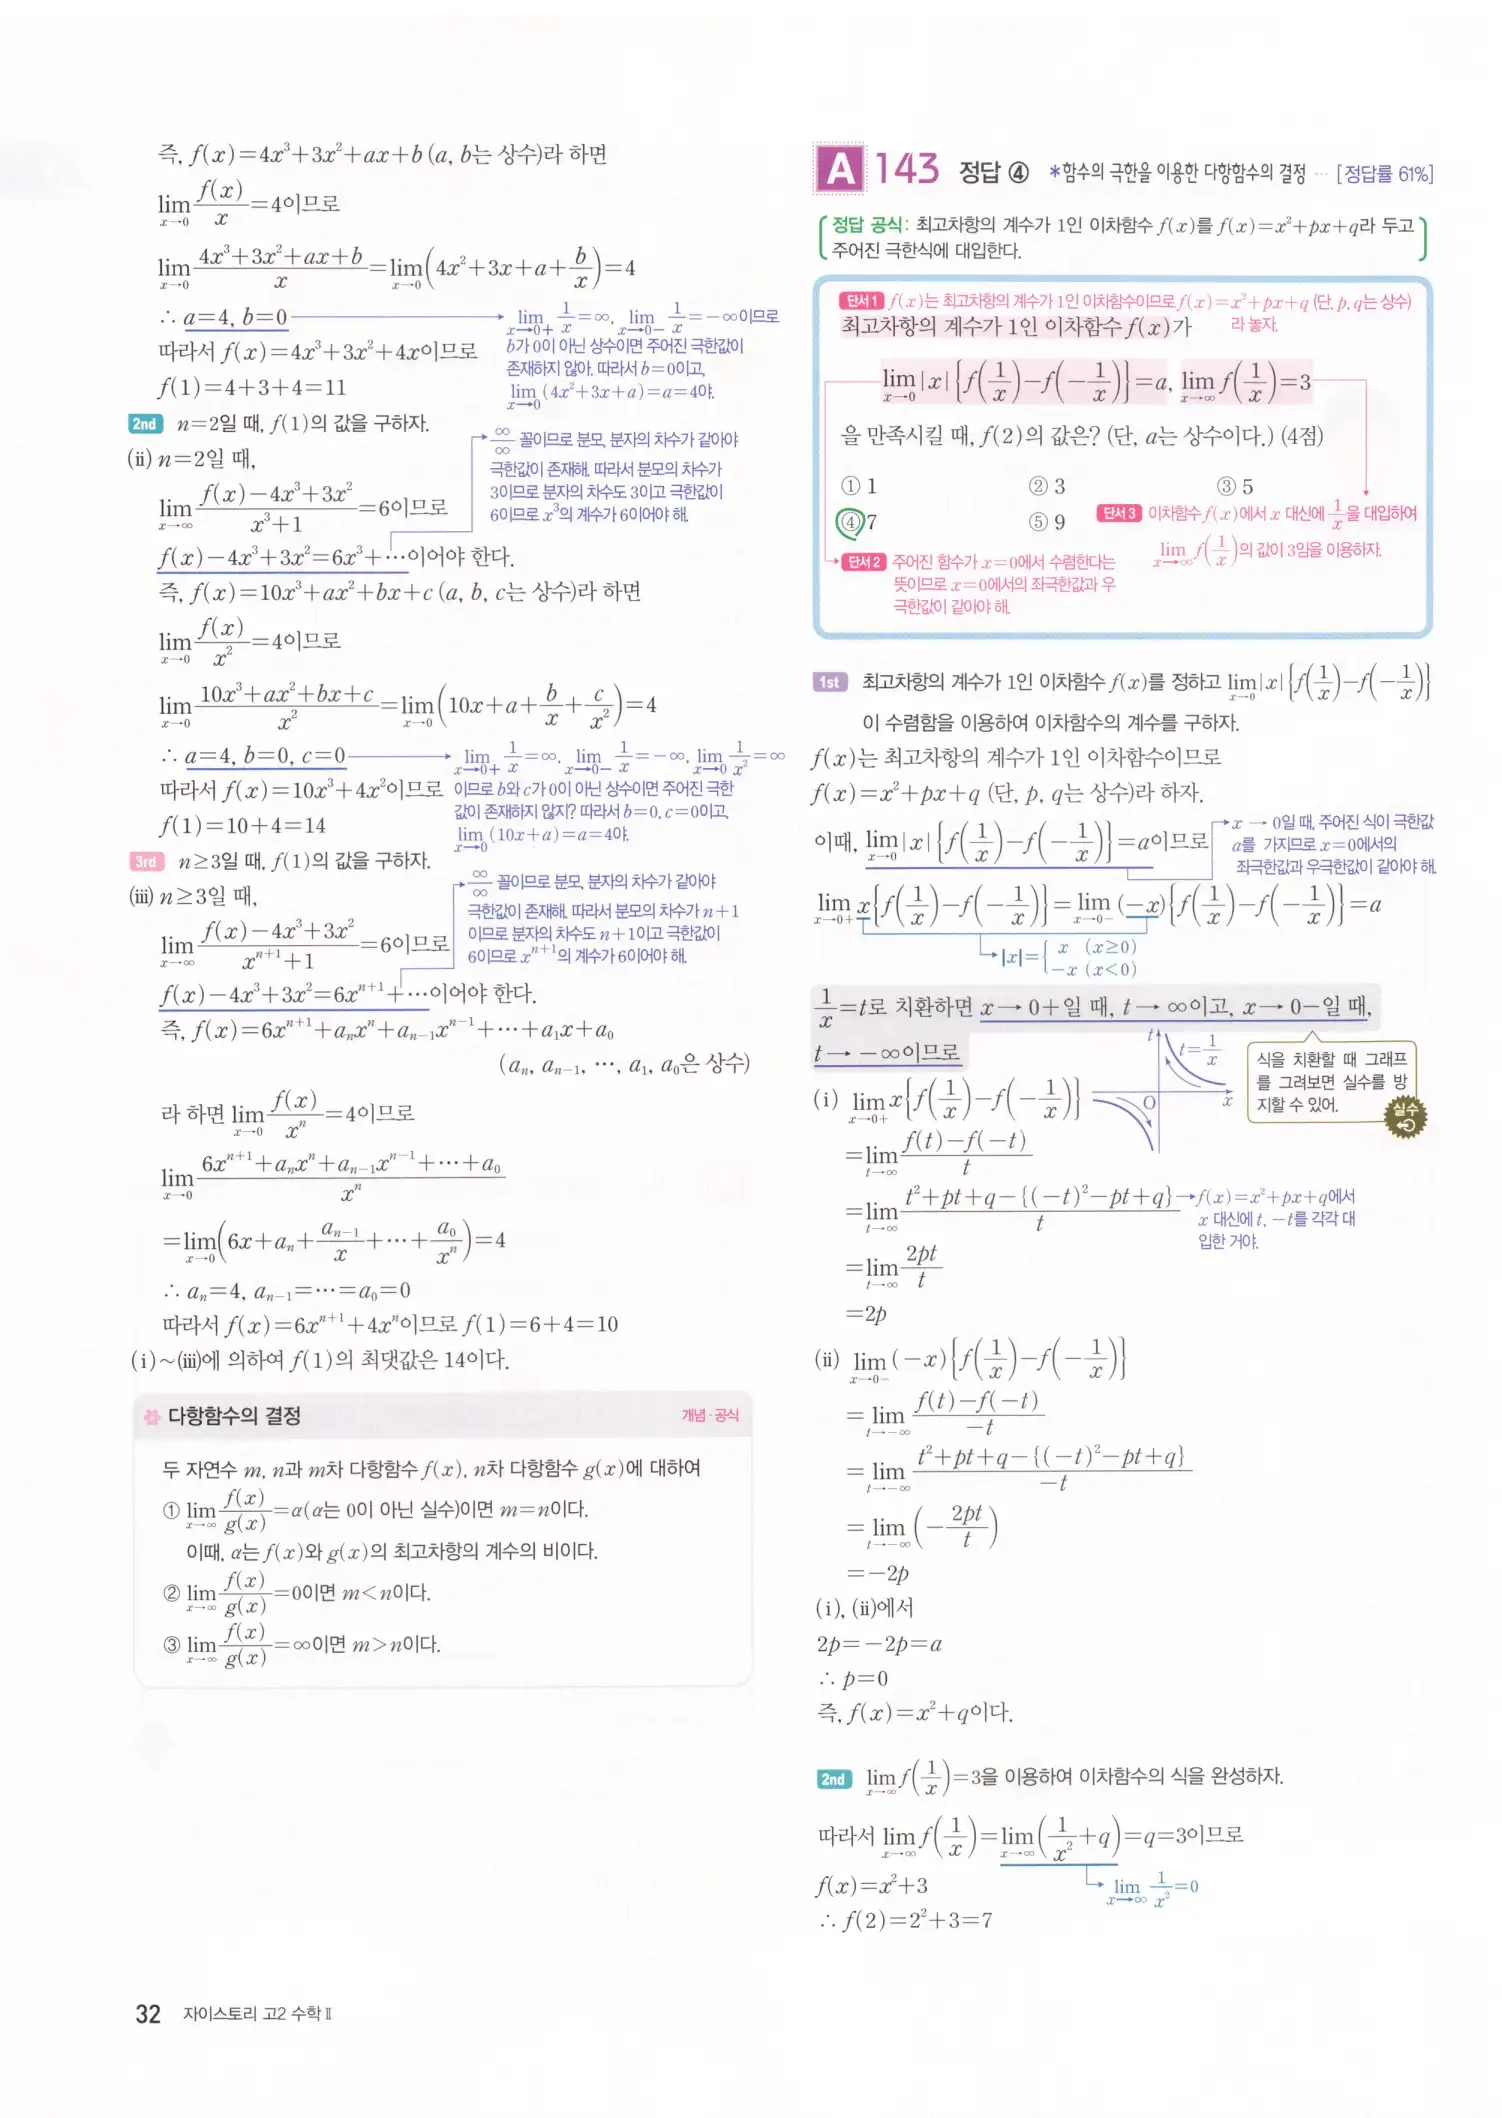 즉, f(x)=4x³+3x²+ax+b (a, b는 상수)라 하면
lim_{x→0} f(x)/x=4이므로
lim_{x→0} (4x³+3x²+ax+b)/x=lim_{x→0}(4x²+3x+a+b/x)=4
∴ a=4, b=0
lim_{x→0+} 1/x=∞, lim_{x→0-} 1/x=-∞이므로
b가 0이 아닌 상수이면 주어진 극한값이
존재하지 않아. 따라서 b=0이고,
lim_{x→0} (4x²+3x+a)=a=4야.
따라서 f(x)=4x³+3x²+4x이므로
f(1)=4+3+4=11
2nd n=2일 때, f(1)의 값을 구하자.
(ii) n=2일 때,
lim_{x→∞} (f(x)-4x³+3x²)/(x³+1)=6이므로
∞/∞ 꼴이므로 분모, 분자의 차수가 같아야
극한값이 존재해. 따라서 분모의 차수가
3이므로 분자의 차수도 3이고 극한값이
6이므로 x³의 계수가 6이어야 해.
f(x)-4x³+3x²=6x³+⋯이어야 한다.
즉, f(x)=10x³+ax²+bx+c (a, b, c는 상수)라 하면
lim_{x→0} f(x)/x²=4이므로
lim_{x→0} (10x³+ax²+bx+c)/x²=lim_{x→0}(10x+a+b/x+c/x²)=4
∴ a=4, b=0, c=0
lim_{x→0+} 1/x=∞, lim_{x→0-} 1/x=-∞, lim_{x→0} 1/x²=∞
이므로 b와 c가 0이 아닌 상수이면 주어진 극한
값이 존재하지 않지? 따라서 b=0, c=0이고,
lim_{x→0} (10x+a)=a=4야.
따라서 f(x)=10x³+4x²이므로
f(1)=10+4=14
3rd n≥3일 때, f(1)의 값을 구하자.
(iii) n≥3일 때,
lim_{x→∞} (f(x)-4x³+3x²)/(xⁿ⁺¹+1)=6이므로
∞/∞ 꼴이므로 분모, 분자의 차수가 같아야
극한값이 존재해. 따라서 분모의 차수가 n+1
이므로 분자의 차수도 n+1이고 극한값이
6이므로 xⁿ⁺¹의 계수가 6이어야 해.
f(x)-4x³+3x²=6xⁿ⁺¹+⋯이어야 한다.
즉, f(x)=6xⁿ⁺¹+aₙxⁿ+aₙ₋₁xⁿ⁻¹+⋯+a₁x+a₀
(aₙ, aₙ₋₁, ⋯, a₁, a₀은 상수)
라 하면 lim_{x→0} f(x)/xⁿ=4이므로
lim_{x→0} (6xⁿ⁺¹+aₙxⁿ+aₙ₋₁xⁿ⁻¹+⋯+a₀)/xⁿ
=lim_{x→0}(6x+aₙ+aₙ₋₁/x+⋯+a₀/xⁿ)=4
∴ aₙ=4, aₙ₋₁=⋯=a₀=0
따라서 f(x)=6xⁿ⁺¹+4xⁿ이므로 f(1)=6+4=10
(i)~(iii)에 의하여 f(1)의 최댓값은 14이다.
다항함수의 결정 개념·공식
두 자연수 m, n과 m차 다항함수 f(x), n차 다항함수 g(x)에 대하여
① lim_{x→∞} f(x)/g(x)=α(α는 0이 아닌 실수)이면 m=n이다.
이때, α는 f(x)와 g(x)의 최고차항의 계수의 비이다.
② lim_{x→∞} f(x)/g(x)=0이면 m<n이다.
③ lim_{x→∞} f(x)/g(x)=∞이면 m>n이다.
32 자이스토리 고2 수학Ⅱ
A 143 정답 ④ *함수의 극한을 이용한 다항함수의 결정 ⋯ [정답률 61%]
정답 공식: 최고차항의 계수가 1인 이차함수 f(x)를 f(x)=x²+px+q라 두고
주어진 극한식에 대입한다.
단서1 f(x)는 최고차항의 계수가 1인 이차함수이므로 f(x)=x²+px+q (단, p, q는 상수)
라 놓자.
최고차항의 계수가 1인 이차함수 f(x)가
lim_{x→0} |x|{f(1/x)-f(-1/x)}=a, lim_{x→∞} f(1/x)=3
을 만족시킬 때, f(2)의 값은? (단, a는 상수이다.) (4점)
① 1 ② 3 ③ 5
④ 7 ⑤ 9
단서3 이차함수 f(x)에서 x 대신에 1/x을 대입하여
lim_{x→∞} f(1/x)의 값이 3임을 이용하자.
단서2 주어진 함수가 x=0에서 수렴한다는
뜻이므로 x=0에서의 좌극한값과 우
극한값이 같아야 해.
1st 최고차항의 계수가 1인 이차함수 f(x)를 정하고 lim_{x→0} |x|{f(1/x)-f(-1/x)}
이 수렴함을 이용하여 이차함수의 계수를 구하자.
f(x)는 최고차항의 계수가 1인 이차함수이므로
f(x)=x²+px+q (단, p, q는 상수)라 하자.
이때, lim_{x→0} |x|{f(1/x)-f(-1/x)}=a이므로
x → 0일 때, 주어진 식이 극한값
a를 가지므로 x=0에서의
좌극한값과 우극한값이 같아야 해.
lim_{x→0+} x{f(1/x)-f(-1/x)}=lim_{x→0-} (-x){f(1/x)-f(-1/x)}=a
|x|={ x (x≥0)
-x (x<0)
1/x=t로 치환하면 x → 0+일 때, t → ∞이고, x → 0-일 때,
t → -∞이므로
t
t=1/x
O
x
식을 치환할 때 그래프
를 그려보면 실수를 방
지할 수 있어.
실수
(i) lim_{x→0+} x{f(1/x)-f(-1/x)}
=lim_{t→∞} (f(t)-f(-t))/t
=lim_{t→∞} (t²+pt+q-{(-t)²-pt+q})/t
f(x)=x²+px+q에서
x 대신에 t, -t를 각각 대
입한 거야.
=lim_{t→∞} 2pt/t
=2p
(ii) lim_{x→0-} (-x){f(1/x)-f(-1/x)}
=lim_{t→-∞} (f(t)-f(-t))/(-t)
=lim_{t→-∞} (t²+pt+q-{(-t)²-pt+q})/(-t)
=lim_{t→-∞} (-2pt/t)
=-2p
(i), (ii)에서
2p=-2p=a
∴ p=0
즉, f(x)=x²+q이다.
2nd lim_{x→∞} f(1/x)=3을 이용하여 이차함수의 식을 완성하자.
따라서 lim_{x→∞} f(1/x)=lim_{x→∞}(1/x²+q)=q=3이므로
lim_{x→∞} 1/x²=0
f(x)=x²+3
∴ f(2)=2²+3=7